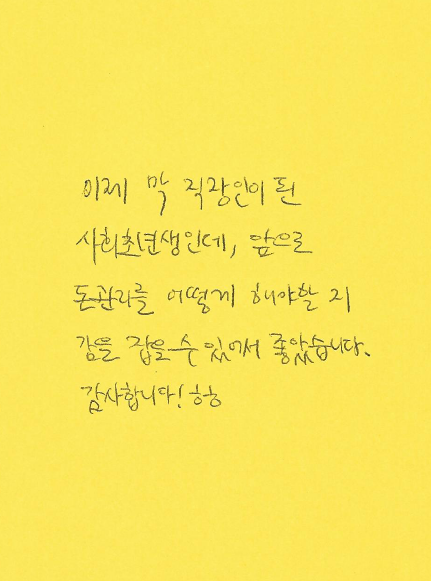 이제 막 직장인이 된
사회초년생인데, 앞으로
돈관리를 어떻게 해야할 지
감을 잡을 수 있어서 좋았습니다.
감사합니다! ㅎㅎ